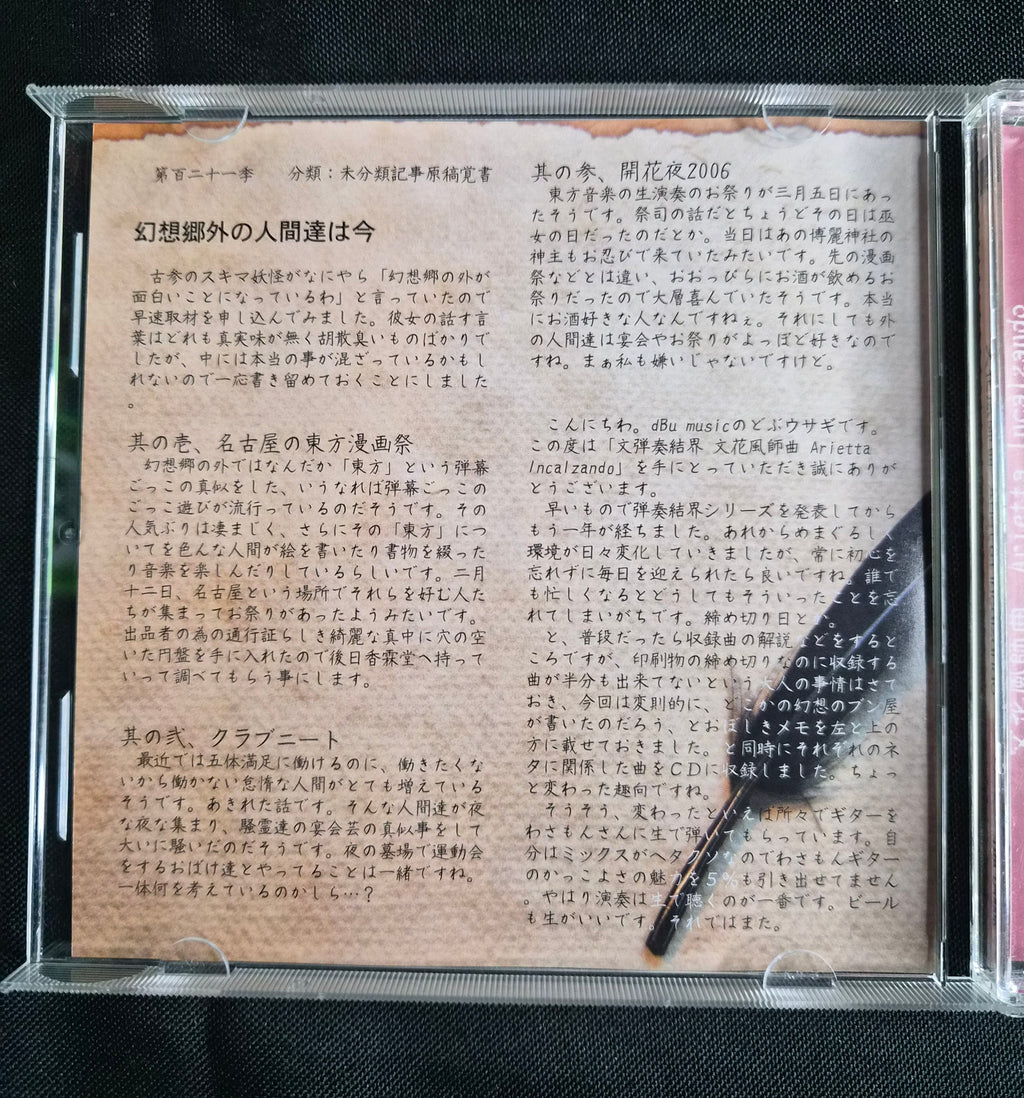 第百二十一季　分類：未分類記事原稿覚書
幻想郷外の人間達は今
古参のスキマ妖怪がなにやら「幻想郷の外が
面白いことになっているわ」と言っていたので
早速取材を申し込んでみました。彼女の話す言
葉はどれも真実味が無く胡散臭いものばかりで
したが、中には本当の事が混ざっているかもし
れないので一応書き留めておくことにしました
。
其の壱、名古屋の東方漫画祭
幻想郷の外ではなんだか「東方」という弾幕
ごっこの真似をした、いうなれば弾幕ごっこの
ごっこ遊びが流行っているのだそうです。その
人気ぶりは凄まじく、さらにその「東方」につ
いてを色んな人間が絵を書いたり書物を綴った
り音楽を楽しんだりしているらしいです。二月
十二日、名古屋という場所でそれらを好む人た
ちが集まってお祭りがあったようみたいです。
出品者の為の通行証らしき綺麗な真中に穴の空
いた円盤を手に入れたので後日香霖堂へ持って
いって調べてもらう事にします。
其の弐、クラブニート
最近では五体満足に働けるのに、働きたくな
いから働かない怠惰な人間がとても増えている
そうです。あきれた話です。そんな人間達が夜
な夜な集まり、騒霊達の宴会芸の真似事をして
大いに騒いだのだそうです。夜の墓場で運動会
をするおばけ達とやってることは一緒ですね。
一体何を考えているのかしら…？
其の参、開花夜2006
東方音楽の生演奏のお祭りが三月五日にあっ
たそうです。祭司の話だとちょうどその日は巫
女の日だったのだとか。当日はあの博麗神社の
神主もお忍びで来ていたみたいです。先の漫画
祭などとは違い、おおっぴらにお酒が飲めるお
祭りだったので大層喜んでいたそうです。本当
にお酒好きな人なんですねぇ。それにしても外
の人間達は宴会やお祭りがよっぽど好きなので
すね。まぁ私も嫌いじゃないですけど。
こんにちわ。dBu musicのどぶウサギです。
この度は「文弾奏結界 文花風師曲 Arietta
Incalzando」を手にとっていただき誠にありが
とうございます。
早いもので弾奏結界シリーズを発表してから
もう一年が経ちました。あれからめまぐるしく
環境が日々変化していきましたが、常に初心を
忘れずに毎日を迎えられたら良いですね。誰で
も忙しくなるとどうしてもそういったことを忘
れてしまいがちです。締め切り日とか。
と、普段だったら収録曲の解説などをすると
ころですが、印刷物の締め切りなのに収録する
曲が半分も出来てないという大人の事情はさて
おき、今回は変則的に、どこかの幻想のブン屋
が書いたのだろう、とおぼしきメモを左と上の
方に載せておきました。と同時にそれぞれのネ
タに関係した曲をＣＤに収録しました。ちょっ
と変わった趣向ですね。
そうそう、変わったといえば所々でギターを
わさもんさんに生で弾いてもらっています。自
分はミックスがヘタクソなのでわさもんギター
のかっこよさの魅力を５％も引き出せてません
。やはり演奏は生で聴くのが一番です。ビール
も生がいいです。それではまた。
Arietta Incalzando